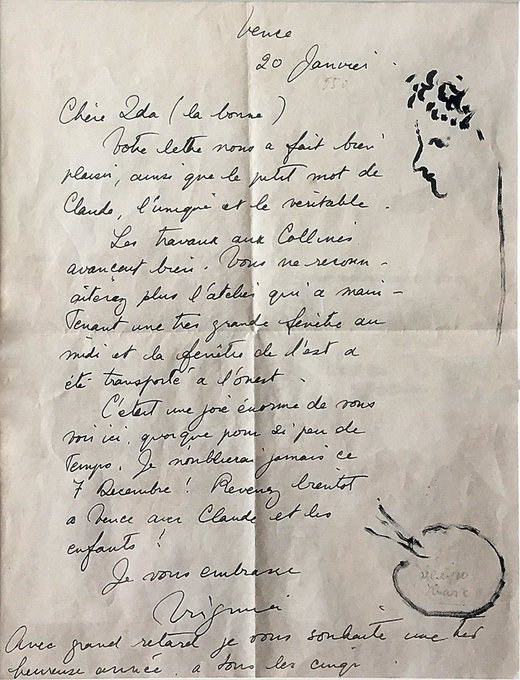 Vence
20 Janvier
1950
Chère Ida (la bonne)
Votre lettre nous a fait bien
plaisir, ainsi que le petit mot de
Claude, l'unique et le veritable.
Les travaux aux Collines
avancent bien. Vous ne reconn-
aiterez plus l'atelier qui a main-
tenant une très grande fenêtre au
midi et la fenêtre de l'est a
été transporté a l'ouest.
C'était une joie énorme de vous
voir ici, quoique pour si peu de
temps. Je n'oublierai jamais ce
7 Decembre! Revenez bientot
a Vence avec Claude et les
enfants!
Je vous embrasse
Virginia
Avec grand retard je vous souhaite une très
heureuse année. a tous les cinq.